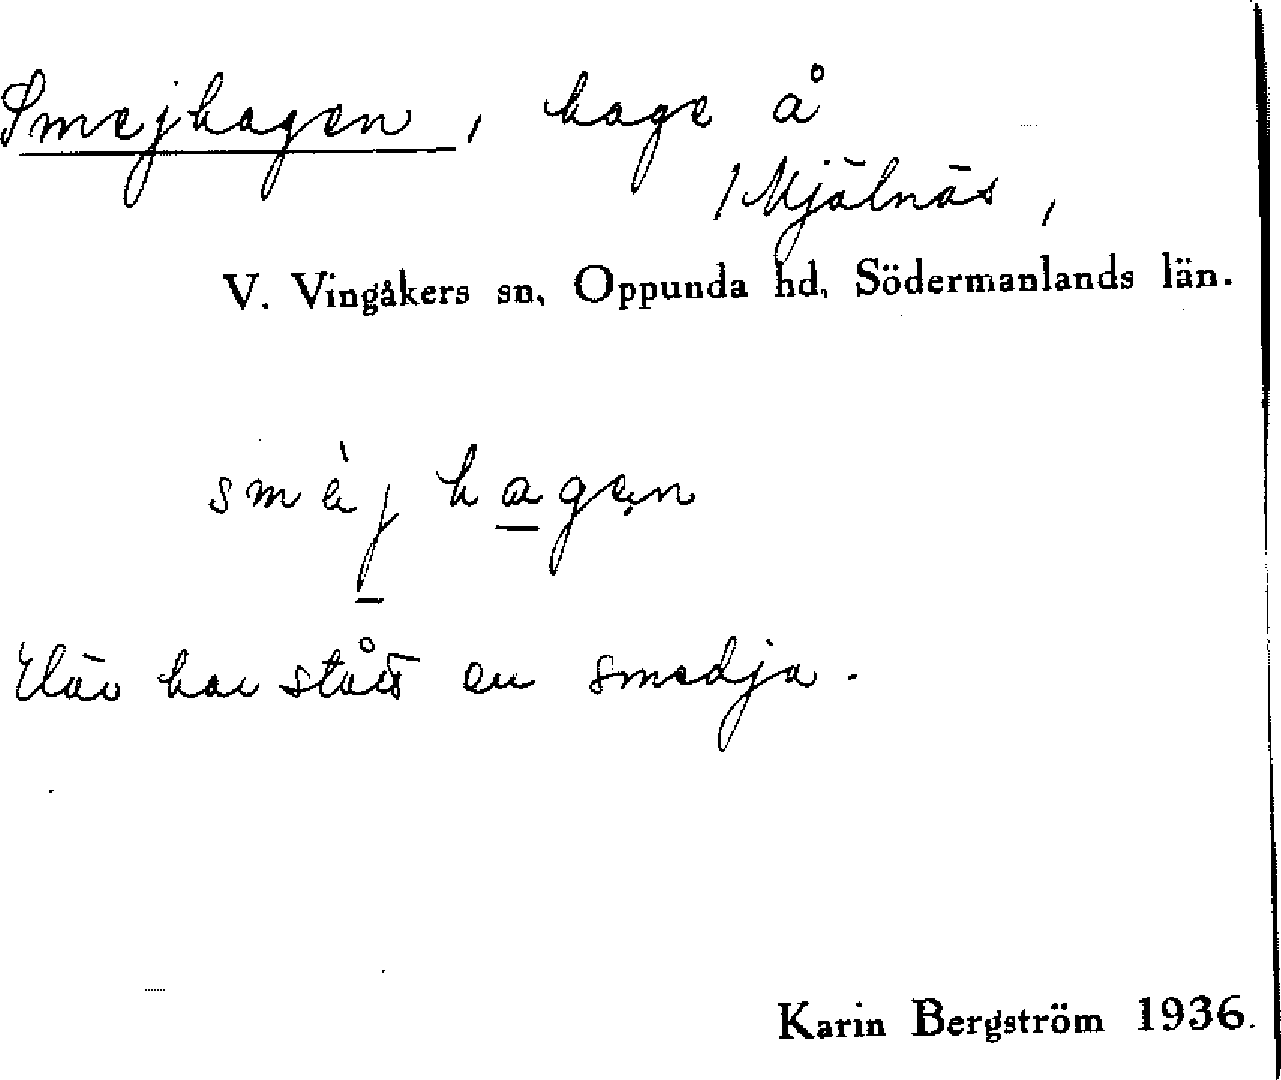 Smejhagen, hage å
1 Mjälnäs,
V. Vingåkers sn, Oppunda hd, Södermanlands län.
smèj hagen
Här har stått en smedja.
Karin Bergström 1936.